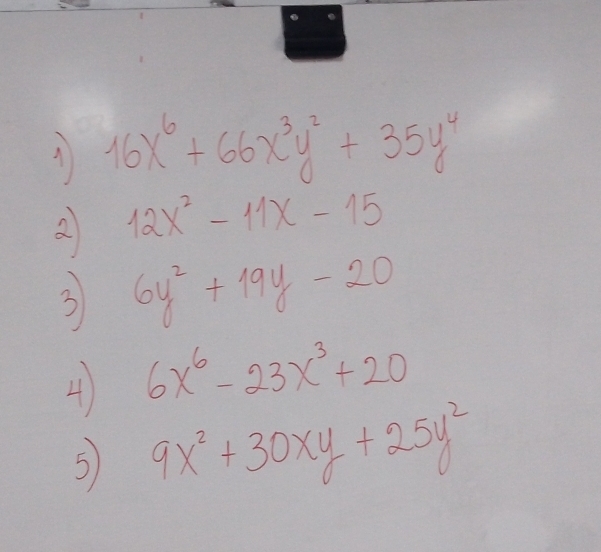 1) 16x⁶ + 66x³y² + 35y⁴
2) 12x² - 11x - 15
3) 6y² + 19y - 20
4) 6x⁶ - 23x³ + 20
5) 9x² + 30xy + 25y²